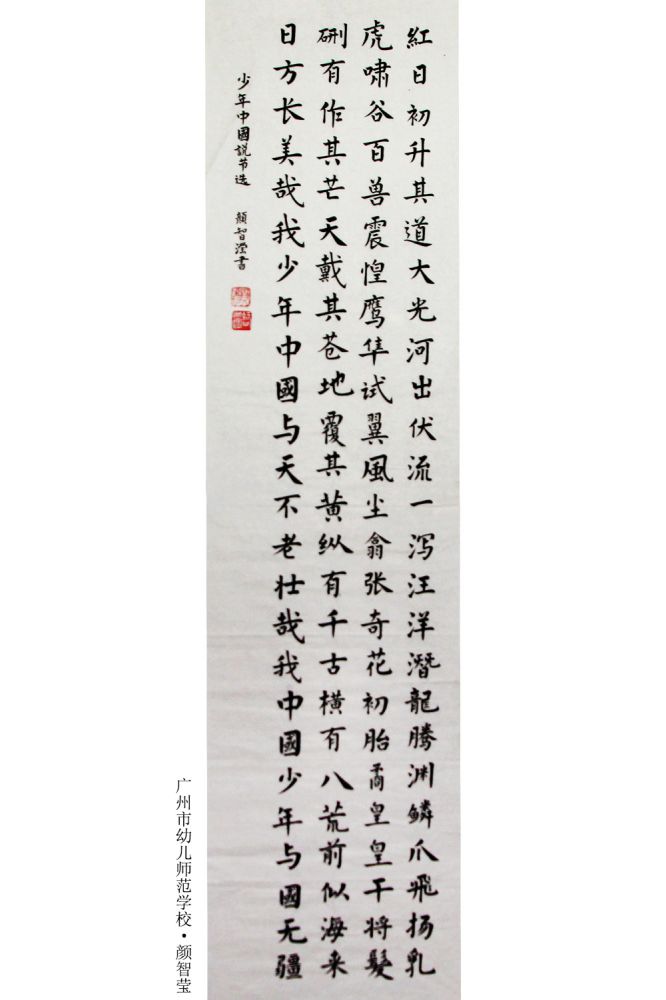 紅日初升其道大光河出伏流一泻汪洋潛龍腾渊鳞爪飛扬乳
虎啸谷百兽震惶鹰隼试翼風尘翕张奇花初胎矞皇皇干将髮
硎有作其芒天戴其苍地覆其黄纵有千古横有八荒前似海来
日方长美哉我少年中國与天不老壮哉我中國少年与國无疆
少年中國説节选 顏智滢書
广州市幼儿师范学校·颜智莹